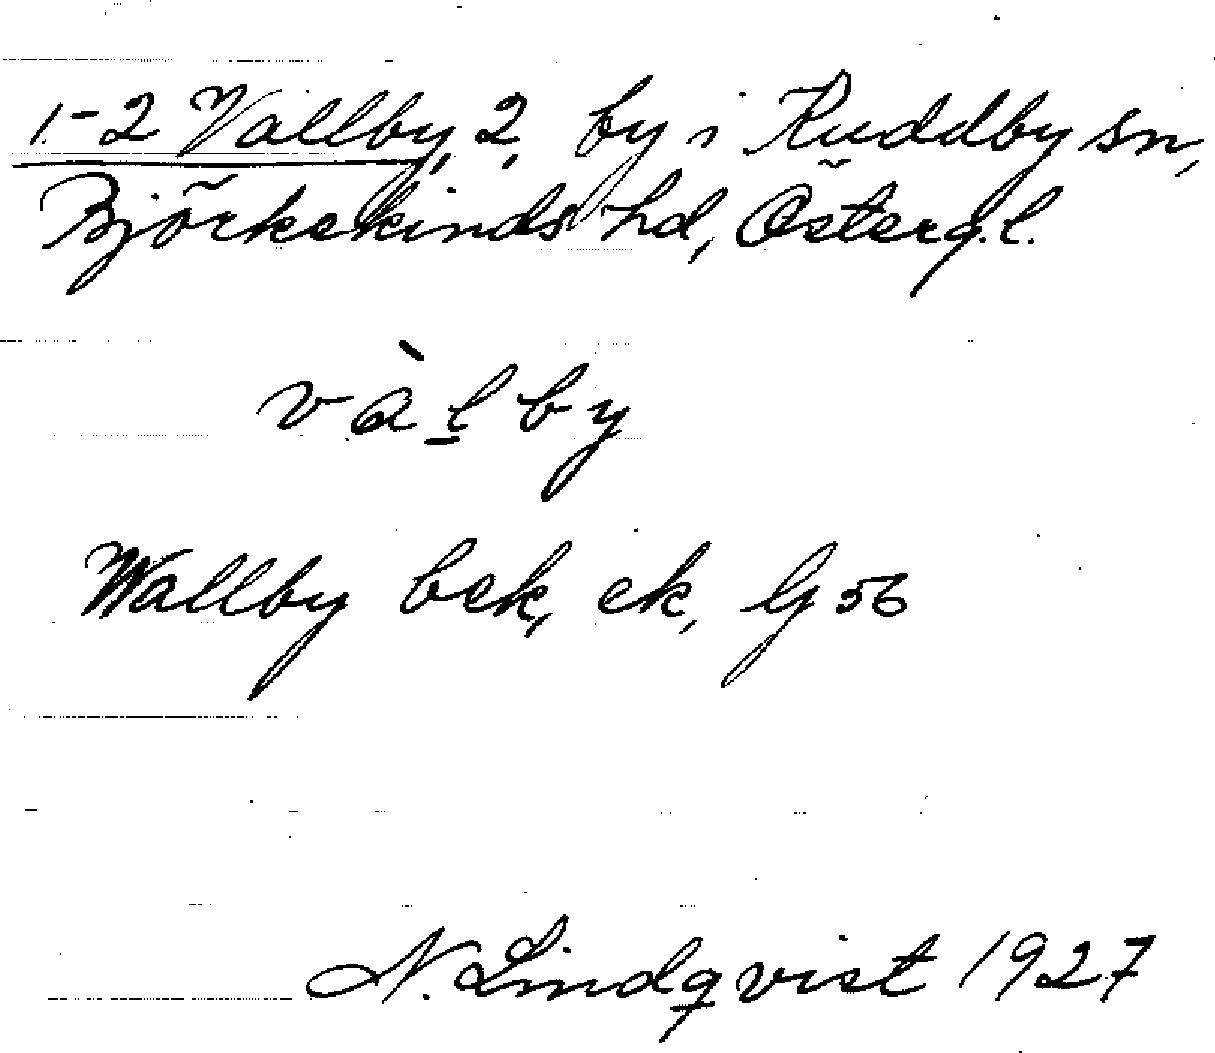 1.-2 Vallby, 2, by i Kuddby sn,
Björkekinds hd, Österg.l.
vàl̲by
Wallby bek, ek, G 56
N. Lindqvist 1927